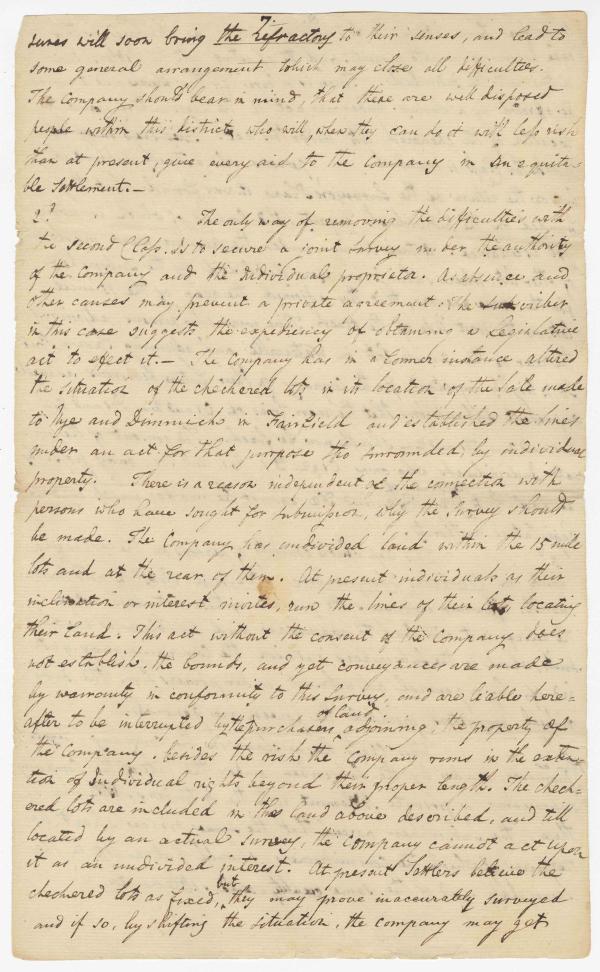 7.
sures will soon bring the refractory to their senses, and lead to
some general arrangement which may close all difficulties.
The Company should bear in mind, that there are well disposed
people within this district who will, when they can do it with less risk
than at present, give every aid to the Company in an equita-
ble settlement.—
2d The only way of removing the difficulties with
the second Class. Is to secure a joint survey under the authority
of the Company and the individuals proprietor. As absence and
other causes may prevent a private agreement. The Subscriber
in this case suggests the expediency of obtaining a Legislative
act to effect it.— The Company has in a former instance altered
the situation of the checkered lots in its location of the Sale made
to Nye and Dimmick in Fairfield and established the lines
under an act for that purpose tho' surrounded by individual
property. There is a reason independent of the connection with
persons who have sought for submission, why the survey should
be made. The Company has undivided land within the 15 mile
lots and at the rear of them. At present individuals as their
inclination or interest invites, run the lines of their lots, locating
their land. This act without the consent of the Company does
not establish the bounds, and yet conveyances are made
by warranty in conformity to this survey, and are liable here-
after to be interrupted by the purchasers of land adjoining, the property of
the Company. besides the risk the Company runs in the exten-
tion of Individual rights beyond their proper length. The check-
ered lots are included in this land above described, and till
located by an actual survey, the Company cannot act upon
it as an undivided interest. At present Settlers believe the
checkered lots as fixed, but they may prove inaccurately surveyed
and if so, by shifting the situation, the company may get